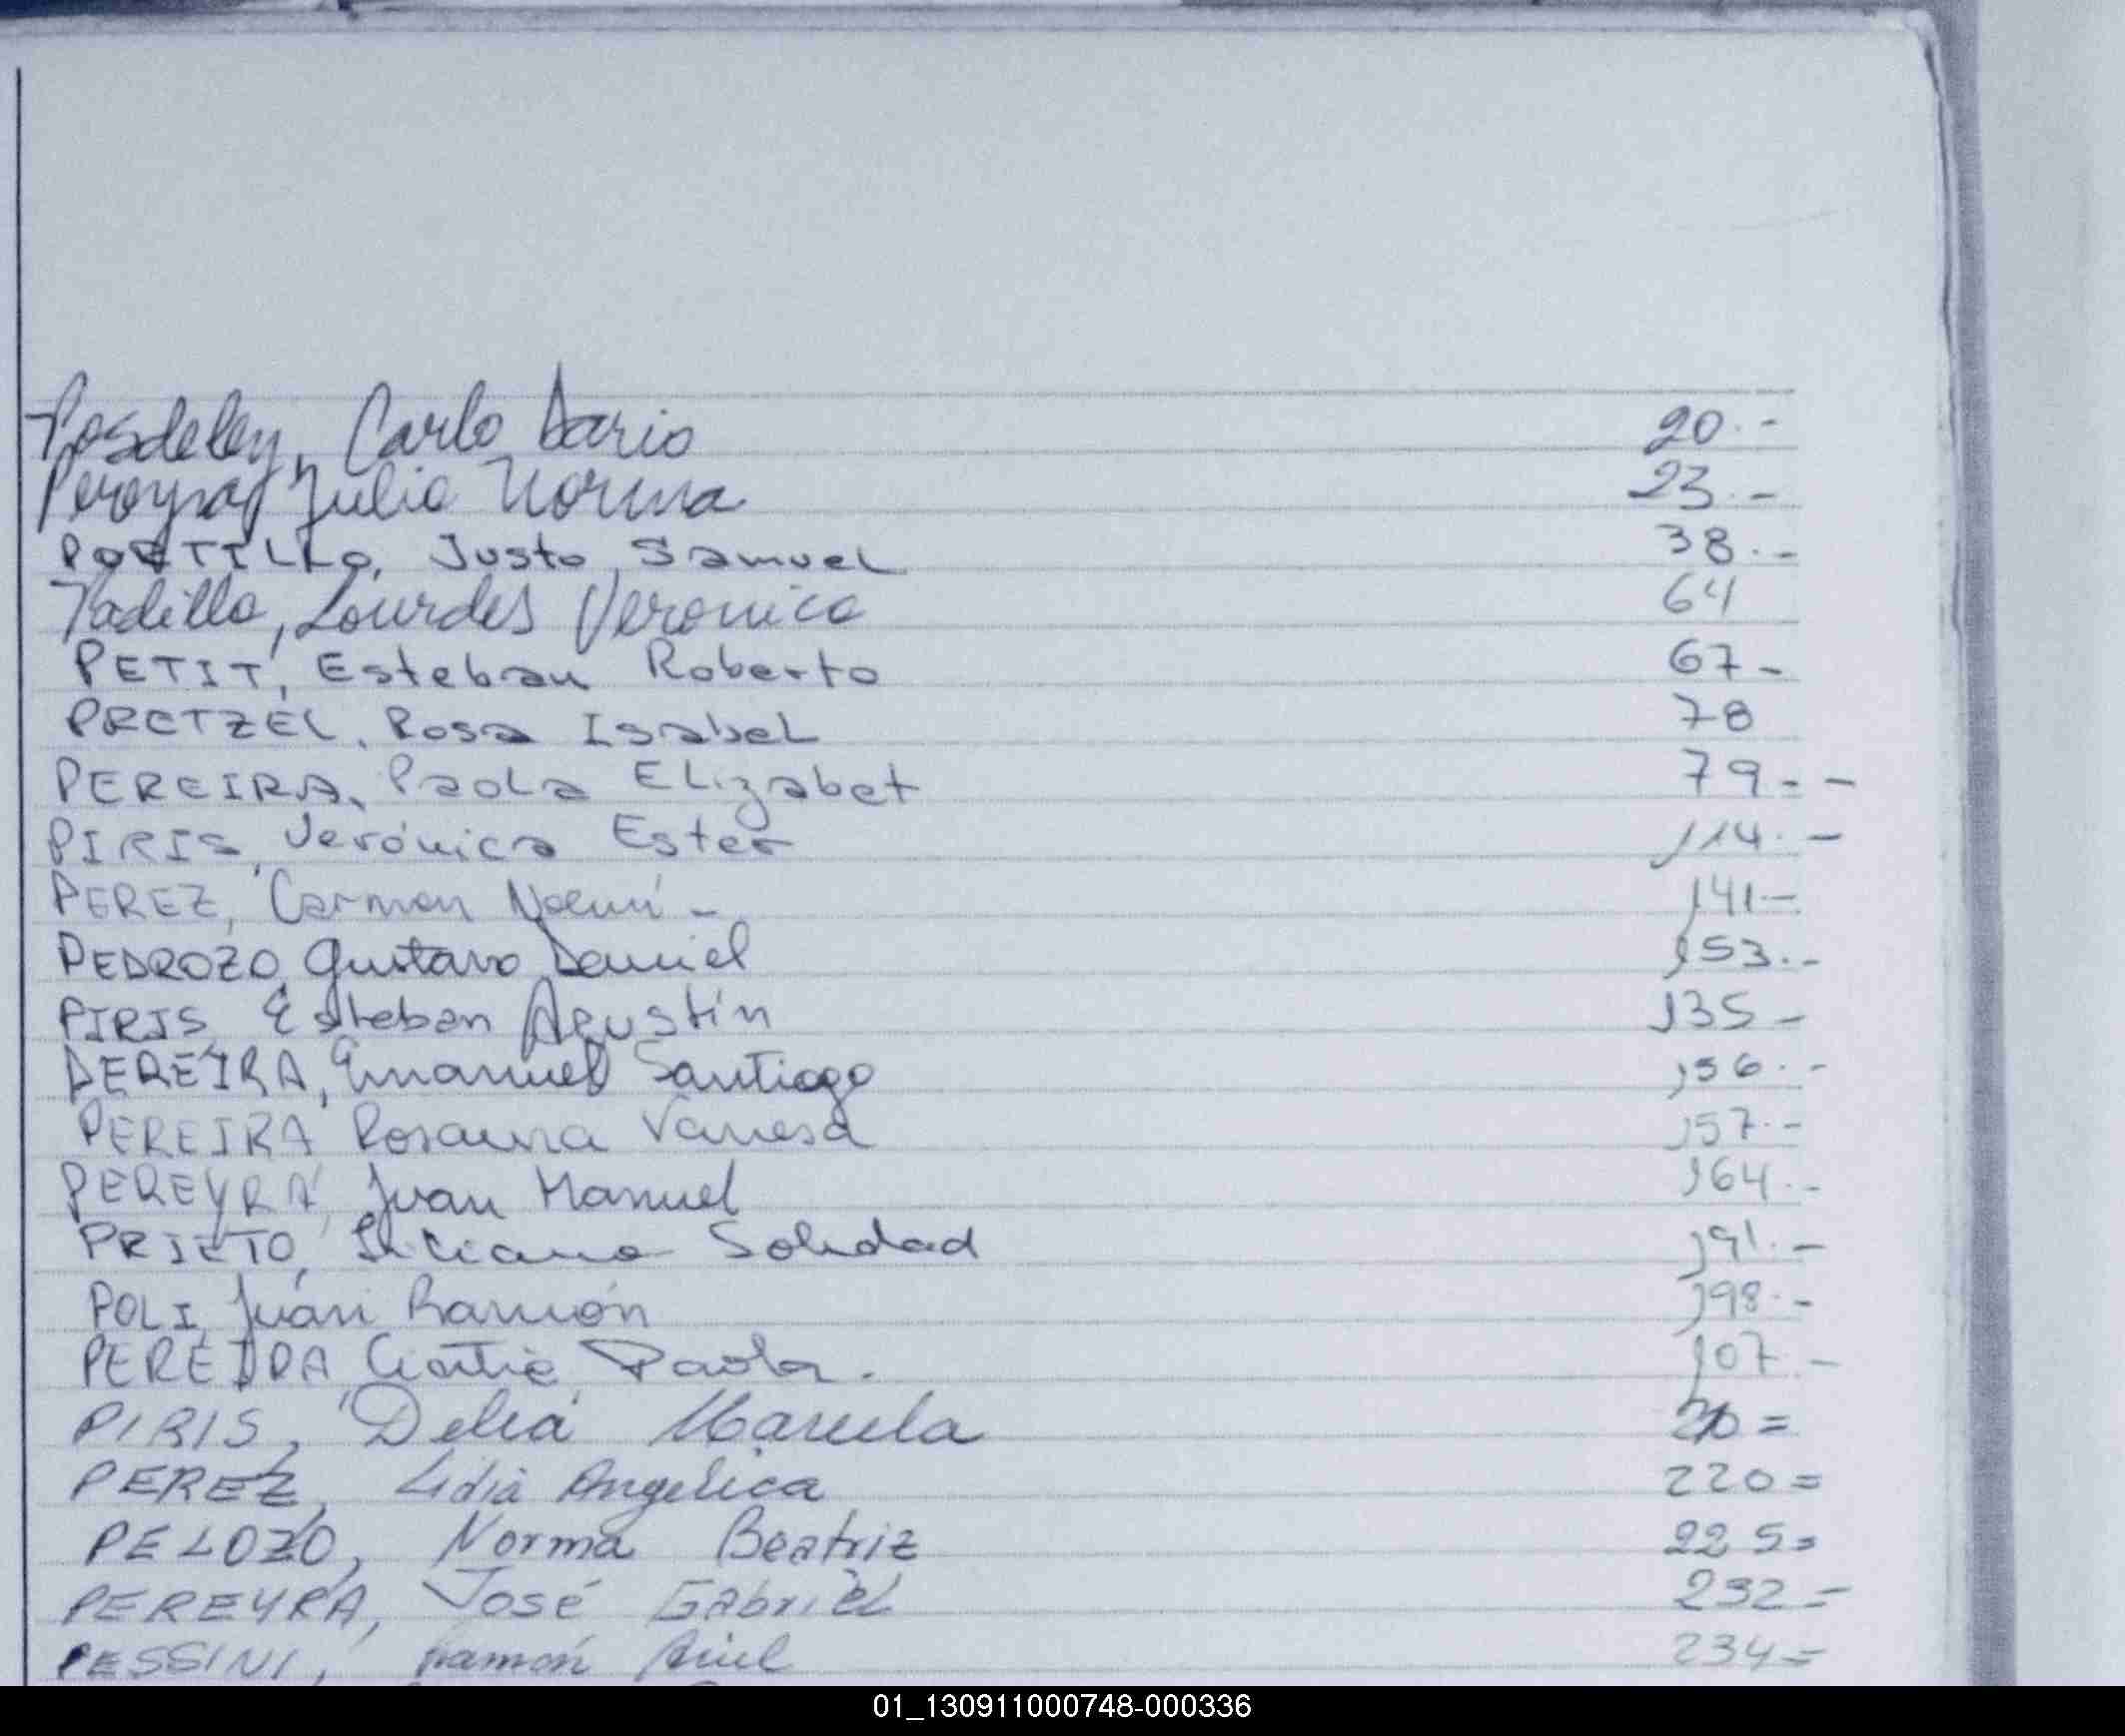 Posdeley, Carlo Dario 20.-
Pereyra, Julia Norma 23.-
PORTILLO, Justo Samuel 38.-
Padilla, Lourdes Veronica 64
PETIT, Esteban Roberto 67-
PRETZEL, Rosa Isabel 78
PEREIRA, Paola Elizabet 79.--
PIRIS, Verónica Ester 114.-
PEREZ, Carmen Noemí - 141.-
PEDROZO, Gustavo Daniel 153.-
PIRIS, Esteban Agustín 135-
PEREIRA, Emanuel Santiago 156.-
PEREIRA Rosaura Vanesa 157.-
PEREYRA, Juan Manuel 164.-
PRIETO, Luciana Soledad 191.-
POLI, Juan Ramón 198.-
PEREIRA, Paola. 107.-
PIRIS, Delia Marcela
PEREZ, Lidia Angelica 220=
PELOZO, Norma Beatriz 225=
PEREYRA, José Gabriel 232=
PESSINI, Ramón Ariel 234=
01_130911000748-000336